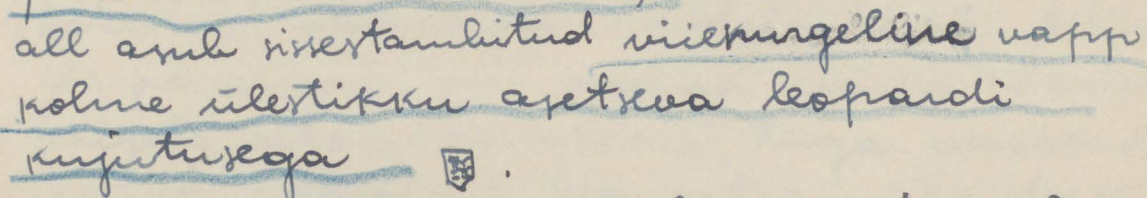 all asub sissestambitud viienurgeline vapp
kolme ülestikku asetseva leopardi
kujutusega .